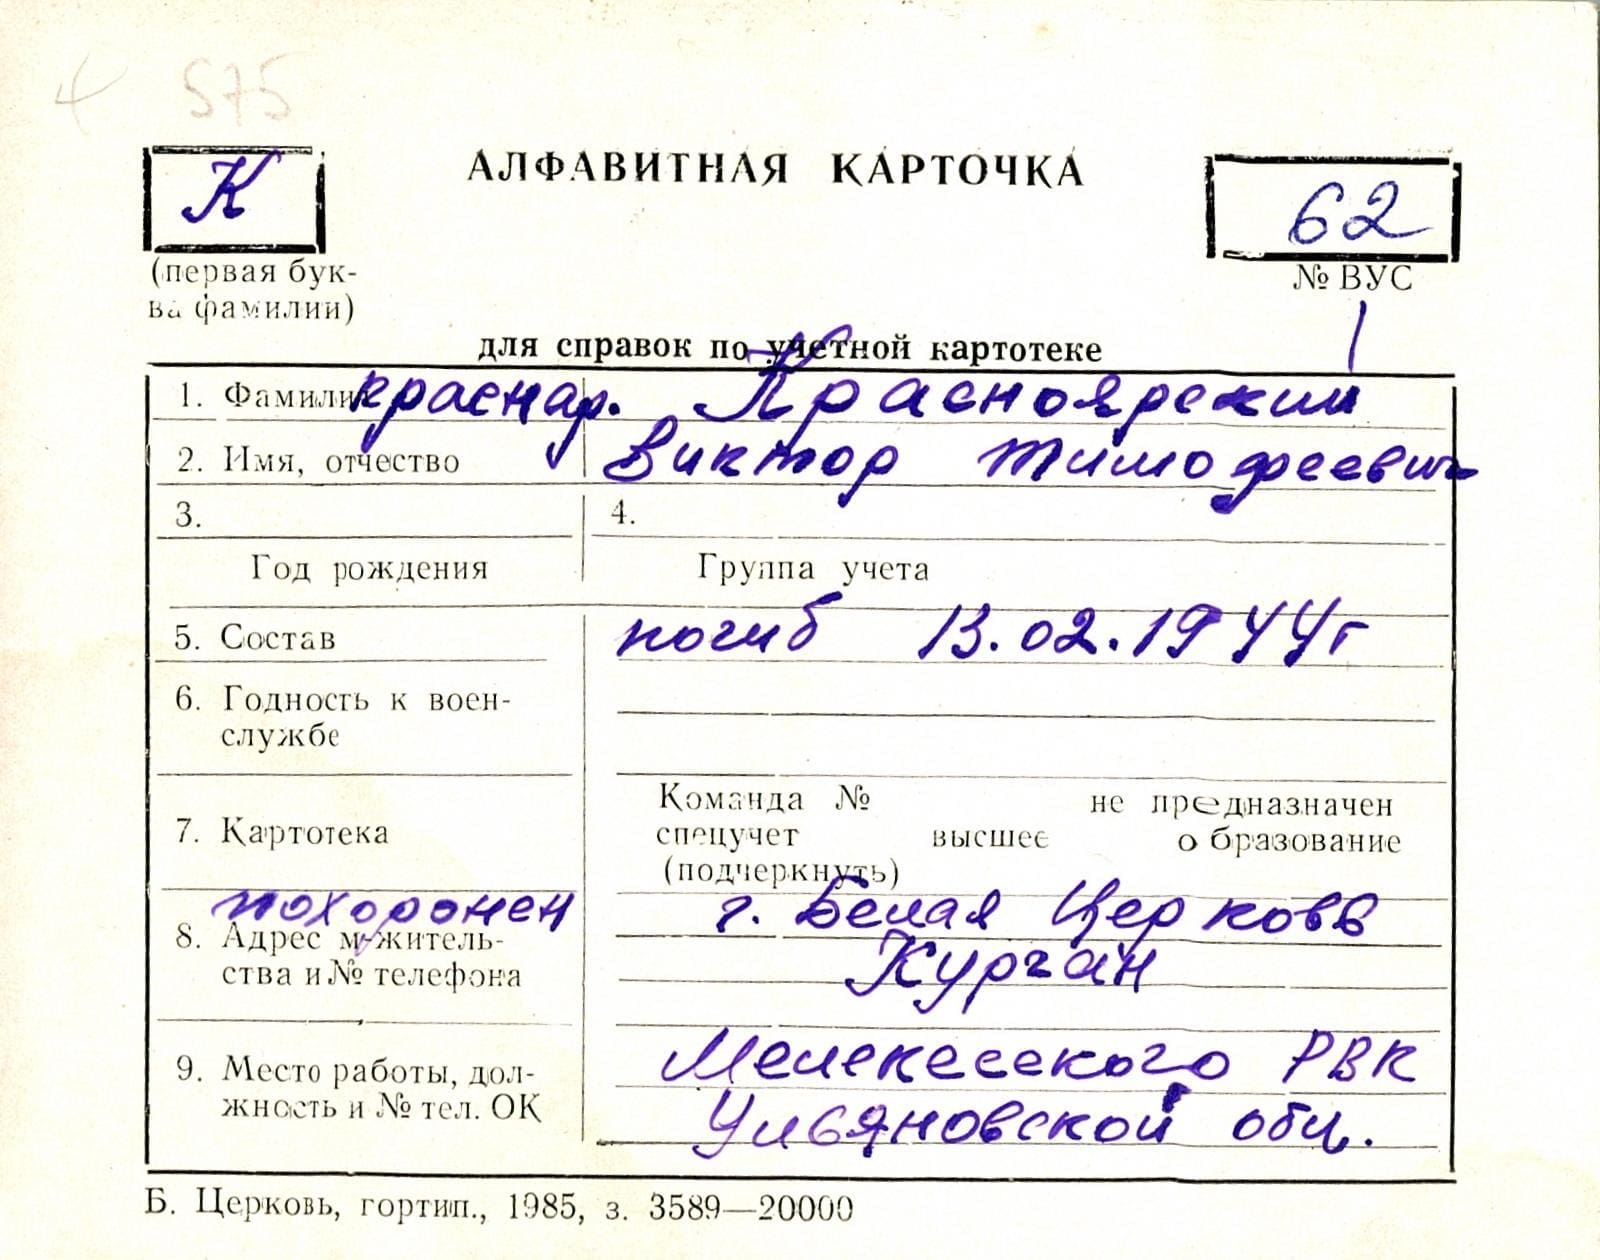 575
К
АЛФАВИТНАЯ КАРТОЧКА
62
(первая бук-
ва фамилии)
№ ВУС
для справок по учетной картотеке
1. Фамилия краснар. Красноярский
2. Имя, отчество Виктор Тимофеевич
3. 4.
Год рождения Группа учета
5. Состав погиб 13.02.1944г
6. Годность к воен-
службе
7. Картотека
Команда № не предназначен
спецучет высшее образование
(подчеркнуть)
похоронен г. Белая Церковь
8. Адрес м-житель-
ства и № телефона
Курган
9. Место работы, дол-
жность и № тел. ОК
Мелекесского РВК
Ульяновской обл.
Б. Церковь, гортип., 1985, з. 3589—20000